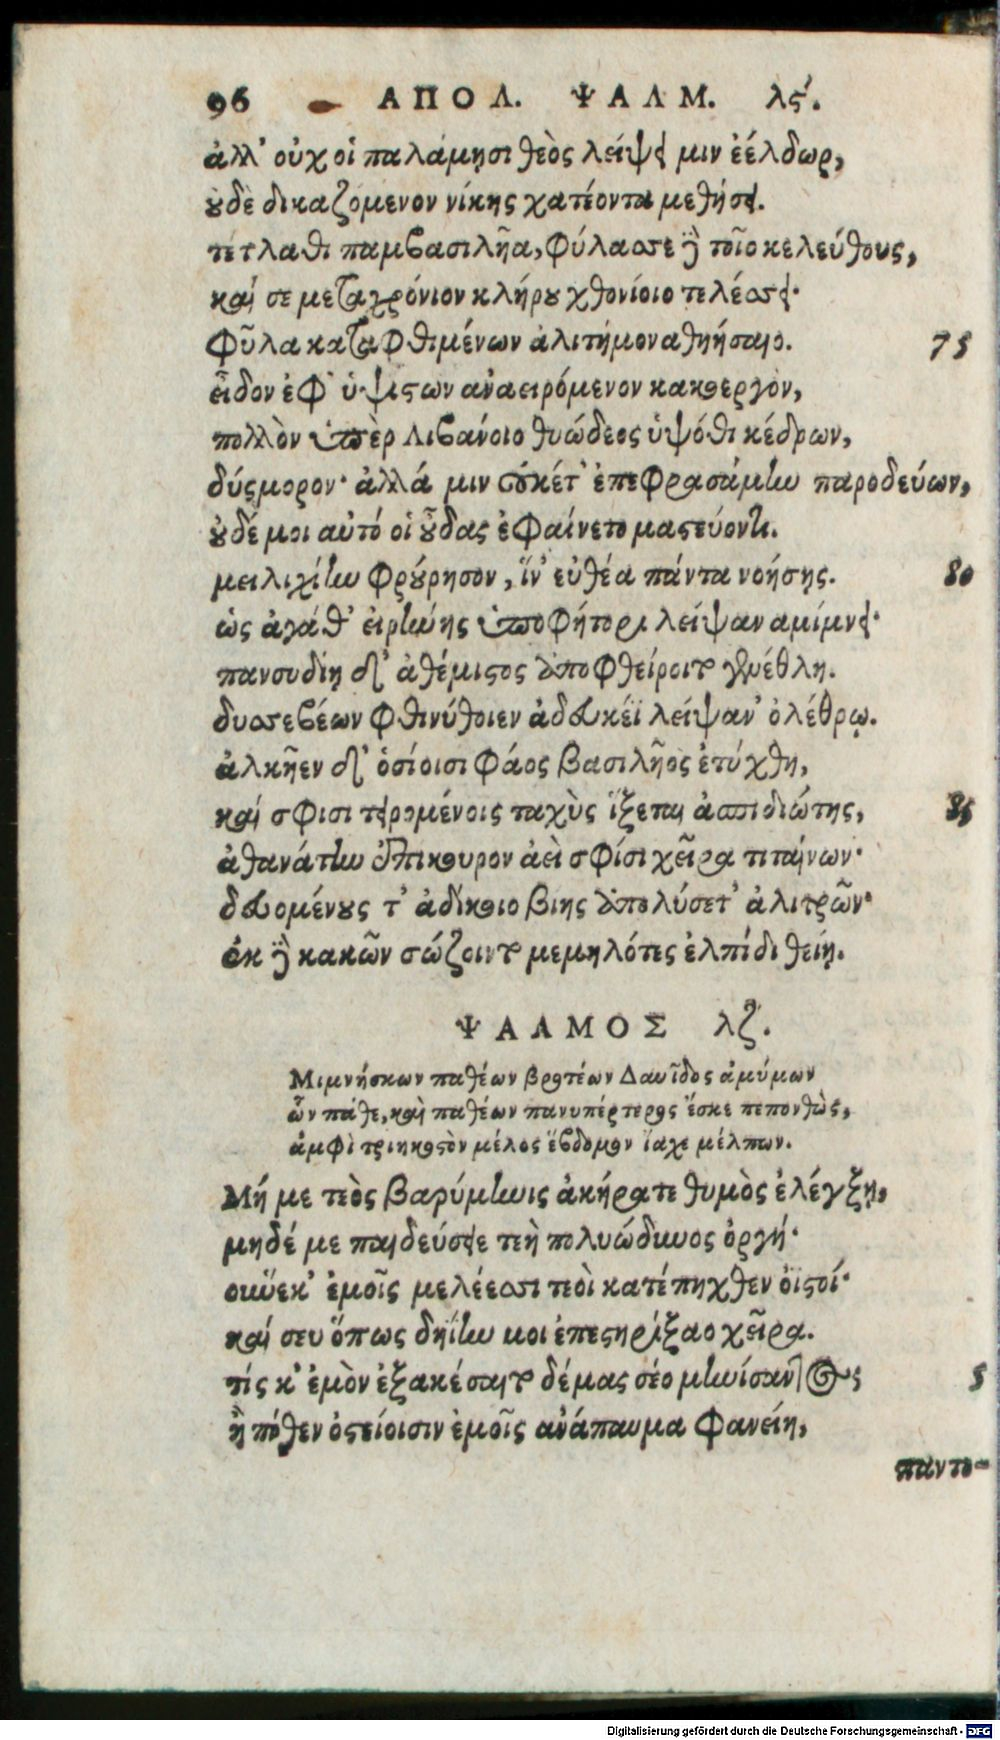 96 ΑΠΟΛ. ΨΑΛΜ. λϛʹ.
ἀλλ' οὐχ οἱ παλάμῃσι θεὸς λείψει μιν ἐέλδωρ,
οὐδὲ δικαζόμενον νίκης χατέοντα μεθήσει.
τέτλαθι παμβασιλῆα, φύλασσε δὲ τοῖο κελεύθους,
καί σε μεταχρόνιον κλήρου χθονίοιο τελέσσει·
φῦλα καταφθιμένων ἀλιτήμονα θηήσαιο. 75
εἶδον ἐφ' ὑψίστων ἀναειρόμενον κακοεργὸν,
πολλὸν ὑπὲρ Λιβανόιο θυώδεος ὑψόθι κέδρων,
δύσμορον· ἀλλά μιν οὐκέτ' ἐπεφρασάμην παροδεύων,
οὐδέ μοι αὐτό οἱ οὖδας ἐφαίνετο μαστεύοντι.
μειλιχίην φρούρησον, ἵν' εὐθέα πάντα νοήσῃς. 80
ὡς ἀγάθ' εἰρήνης ὑποφήτορι λείψανα μίμνει·
πανσυδίῃ δ' ἀθέμιστος ἀποφθείροιτο γενέθλη.
δυσσεβέων φθινύθοιεν ἀδευκέϊ λείψαν' ὀλέθρῳ.
ἀλκῆεν δ' ὁσίοισι φάος βασιλῆος ἐτύχθη,
καί σφισι τειρομένοις ταχὺς ἵξεται ἀσπιδιώτης, 85
ἀθανάτην ἐπίκουρον ἀεὶ σφίσι χεῖρα τιταίνων·
δευομένους τ' ἀδίκοιο βίης ἀπολύσετ' ἀλιτρῶν·
ἐκ δὲ κακῶν σώζοιντο μεμηλότες ἐλπίδι θείῃ.
ΨΑΛΜΟΣ λζ.
Μιμνήσκων παθέων βροτέων Δαυῖδος ἀμύμων
ὧν πάθε, καὶ παθέων πανυπέρτερος ἔσκε πεπονθὼς,
ἀμφὶ τριηκοστὸν μέλος ἕβδομον ἴαχε μέλπων.
Μή με τεὸς βαρύμηνις ἀκήρατε θυμὸς ἐλέγξῃ,
μηδέ με παιδεύσειε τεὴ πολυώδυνος ὀργή·
οὕνεκ' ἐμοῖς μελέεσσι τεοὶ κατέπηχθεν ὀϊστοί·
καί σευ ὅπως δηίην μοι ἐπεστηρίξαο χεῖρα.
τίς κ' ἐμὸν ἐξακέσαιτο δέμας σέο μηνίσαντος 5
ἢ πόθεν ὀστείοισιν ἐμοῖς ἀνάπαυμα φανείη,
παντο-
Digitalisierung gefördert durch die Deutsche Forschungsgemeinschaft - DFG